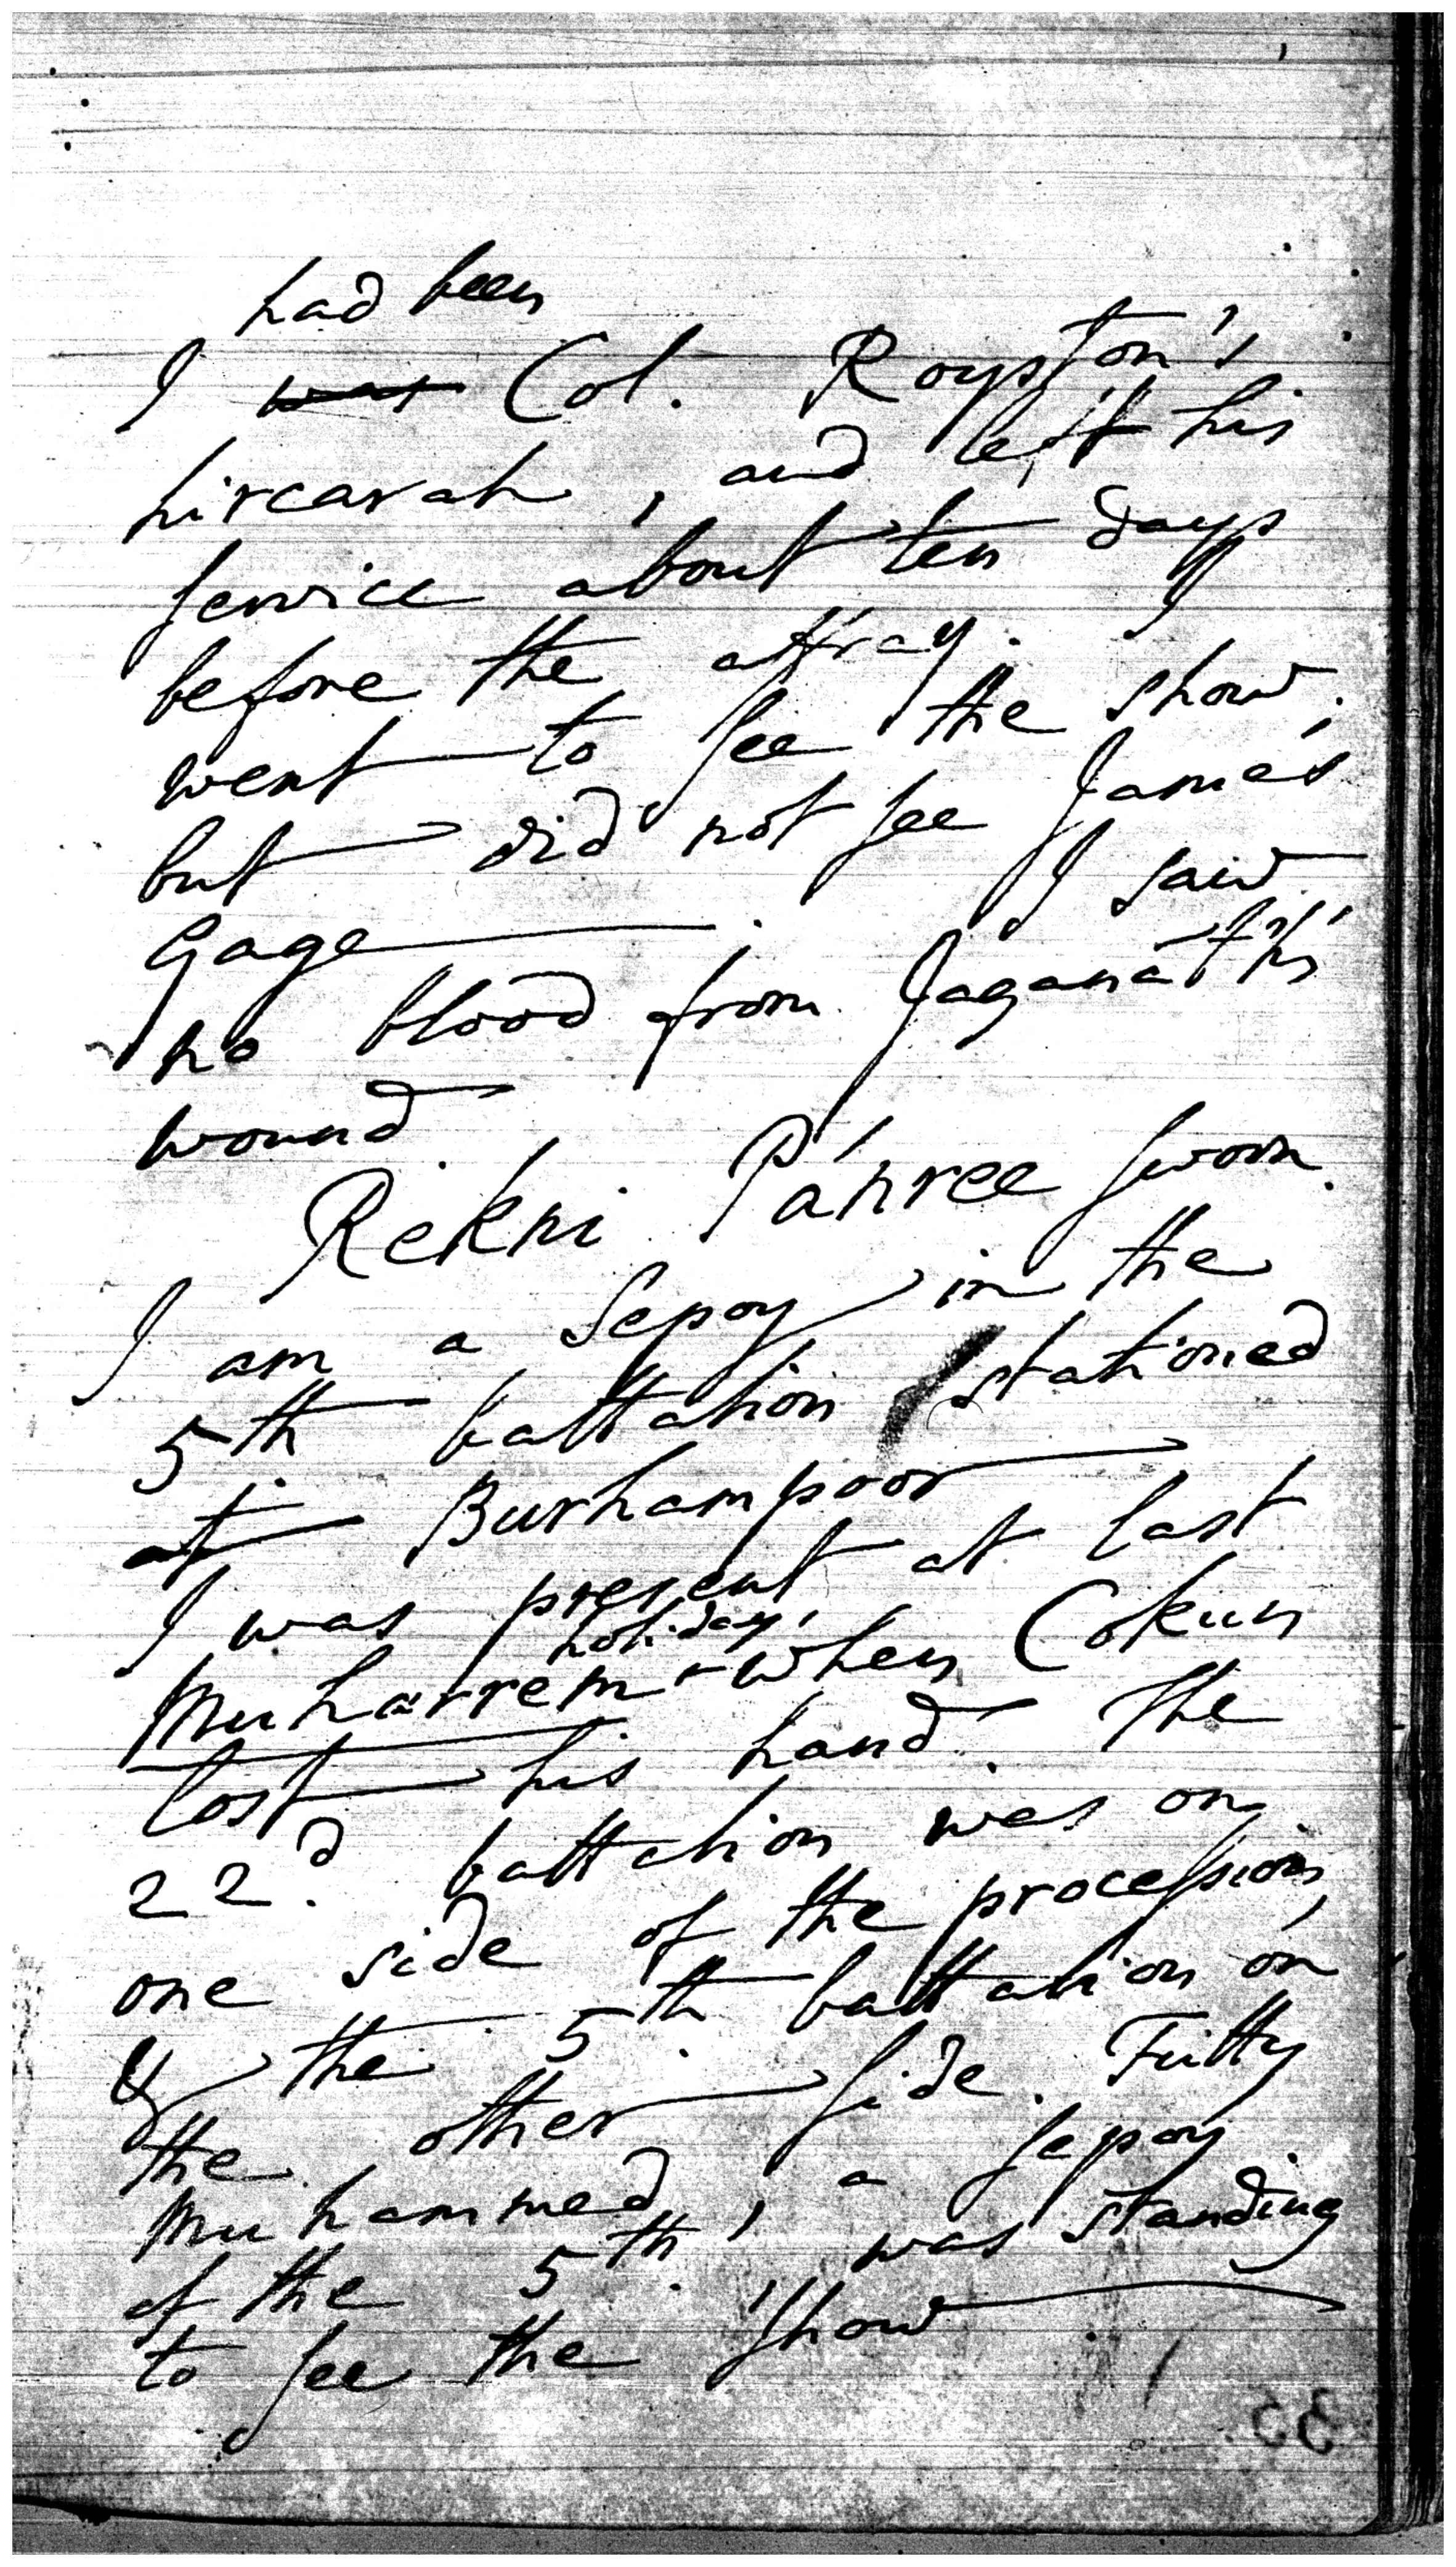 had been
I was Col. Royston's
hircarah, and left his
service about ten days
before the affray. I
went to see the show,
but did not see James
Gage. I saw
no blood from Jaganáth's
wound.
Rekni Pánree sworn.
I am a Sepoy in the
5th battalion stationed
at Burhampoor
I was present at last
holiday,
Muharrem when Cokun
lost his hand. The
22d. battalion was on
one side of the procession,
& the 5th battalion on
the other side. Futty
Muhammed, a sepoy
of the 5th, was standing
to see the show